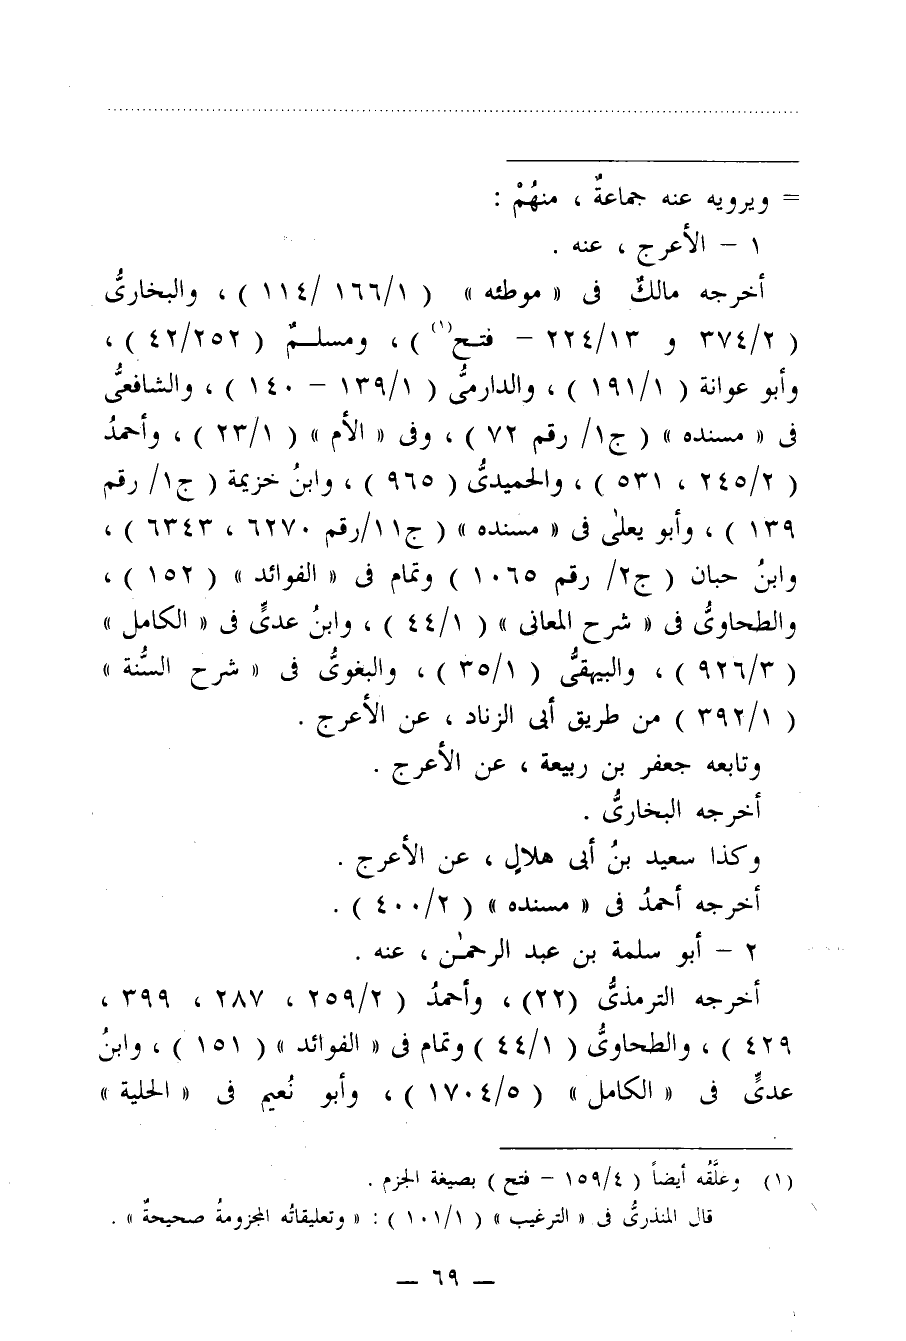 = ويرويه عنه جماعةٌ ، منهُمْ :
١ – الأعرج ، عنه .
أخرجه مالكٌ فى « موطئه » ( ١٦٦/١ /١١٤ ) ، والبخارىُّ
( ٣٧٤/٢ و ٢٢٤/١٣ – فتح(١) ) ، ومسلـمٌ ( ٤٢/٢٥٢ ) ،
وأبو عوانة ( ١٩١/١ ) ، والدارمىُّ ( ١٣٩/١ – ١٤٠ ) ، والشافعىُّ
فى « مسنده » ( ج١/ رقم ٧٢ ) ، وفى « الأم » ( ٢٣/١ ) ، وأحمدُ
( ٢٤٥/٢ ، ٥٣١ ) ، والحميدىُّ ( ٩٦٥ ) ، وابنُ خزيمة ( ج١/ رقم
١٣٩ ) ، وأبو يعلىٰ فى « مسنده » ( ج١١/رقم ٦٢٧٠ ، ٦٣٤٣ ) ،
وابنُ حبان ( ج٢/ رقم ١٠٦٥ ) وتمام فى « الفوائد » ( ١٥٢ ) ،
والطحاوىُّ فى « شرح المعانى » ( ٤٤/١ ) ، وابنُ عدىٍّ فى « الكامل »
( ٩٢٦/٣ ) ، والبيهقىُّ ( ٣٥/١ ) ، والبغوىُّ فى « شرح السُّنة »
( ٣٩٢/١ ) من طريق أبى الزناد ، عن الأعرج .
وتابعه جعفر بن ربيعة ، عن الأعرج .
أخرجه البخارىُّ .
وكذا سعيد بنُ أبى هلالٍ ، عن الأعرج .
أخرجه أحمدُ فى « مسنده » ( ٤٠٠/٢ ) .
٢ – أبو سلمة بن عبد الرحمـٰن ، عنه .
أخرجه الترمذىُّ (٢٢) ، وأحمدُ ( ٢٥٩/٢ ، ٢٨٧ ، ٣٩٩ ،
٤٢٩ ) ، والطحاوىُّ ( ٤٤/١ ) وتمام فى « الفوائد » ( ١٥١ ) ، وابنُ
عدىٍّ فى « الكامل » ( ١٧٠٤/٥ ) ، وأبو نُعيم فى « الحلية »
(١) وعلَّقُه أيضاً ( ١٥٩/٤ – فتح ) بصيغة الجزم .
قال المنذرىُّ فى « الترغيب » ( ١٠١/١ ) : « وتعليقاتُه المجزومةُ صحيحةٌ » .
— ٦٩ —